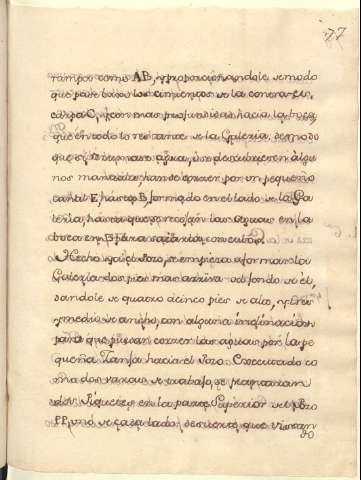 77
rampa como AB, y proporcionandole de modo
que pase baxo los cimientos de la contra-es-
carpa C, y con mas profundidad hacia la boca
que en todo lo restante de la Galeria, de modo
que si se encontrase agua, ú se descubriesen algu
nos manantiales han de correr por un pequeño
canal E, hasta B, formado en el lado de la Ga
leria, hasta que se recojan las aguas en la
boca en B, para sacarlas con cubos.
Hecho que sea el Pozo, se empieza a formar la
Galeria dos pies mas arriba del fondo de él,
dandole de quatro á cinco pies de alto, y tres
y medio de ancho, con alguna inclinacion
para que puedan correr las aguas por la pe
queña Zanja hacia el Pozo. Executado co
mo dos varas de trabajo, se plantarán
dos Piquetes en la parte Superior del Pozo
PP, uno de cada lado, de suerte que vengan